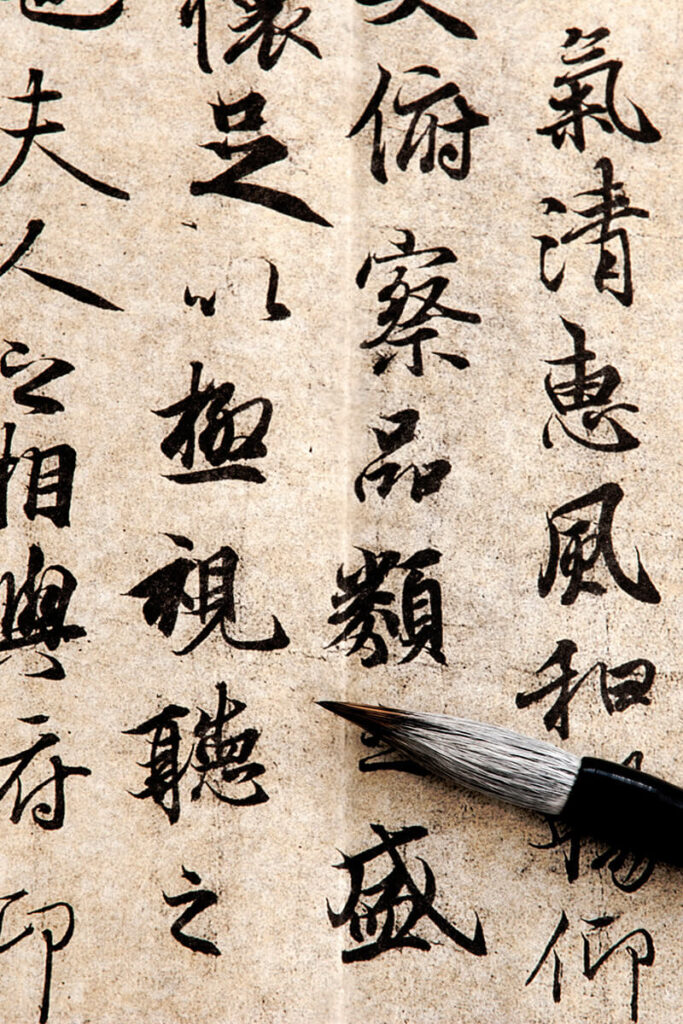 氣清惠風和暢仰
俯察品類盛
懷足以極視聽之
夫人之相與俯仰